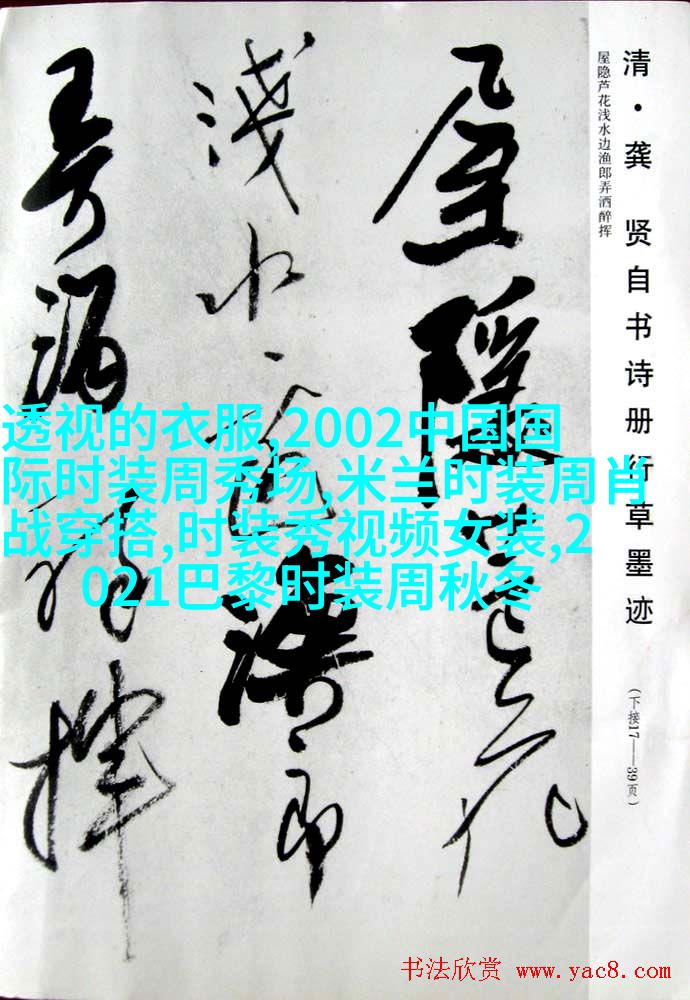 清·龚 贤自书诗册行草墨迹
(下接17——39页)
屋隐芦花浅水边渔郎弄洒醉挥
屋隱芦花
淺水邊漁郎
弄酒醉揮
透视的衣服,2002中国国
际时装周秀场,米兰时装周肖
战穿搭,时装秀视频女装,2
021巴黎时装周秋冬
书法欣赏 www.yac8.com